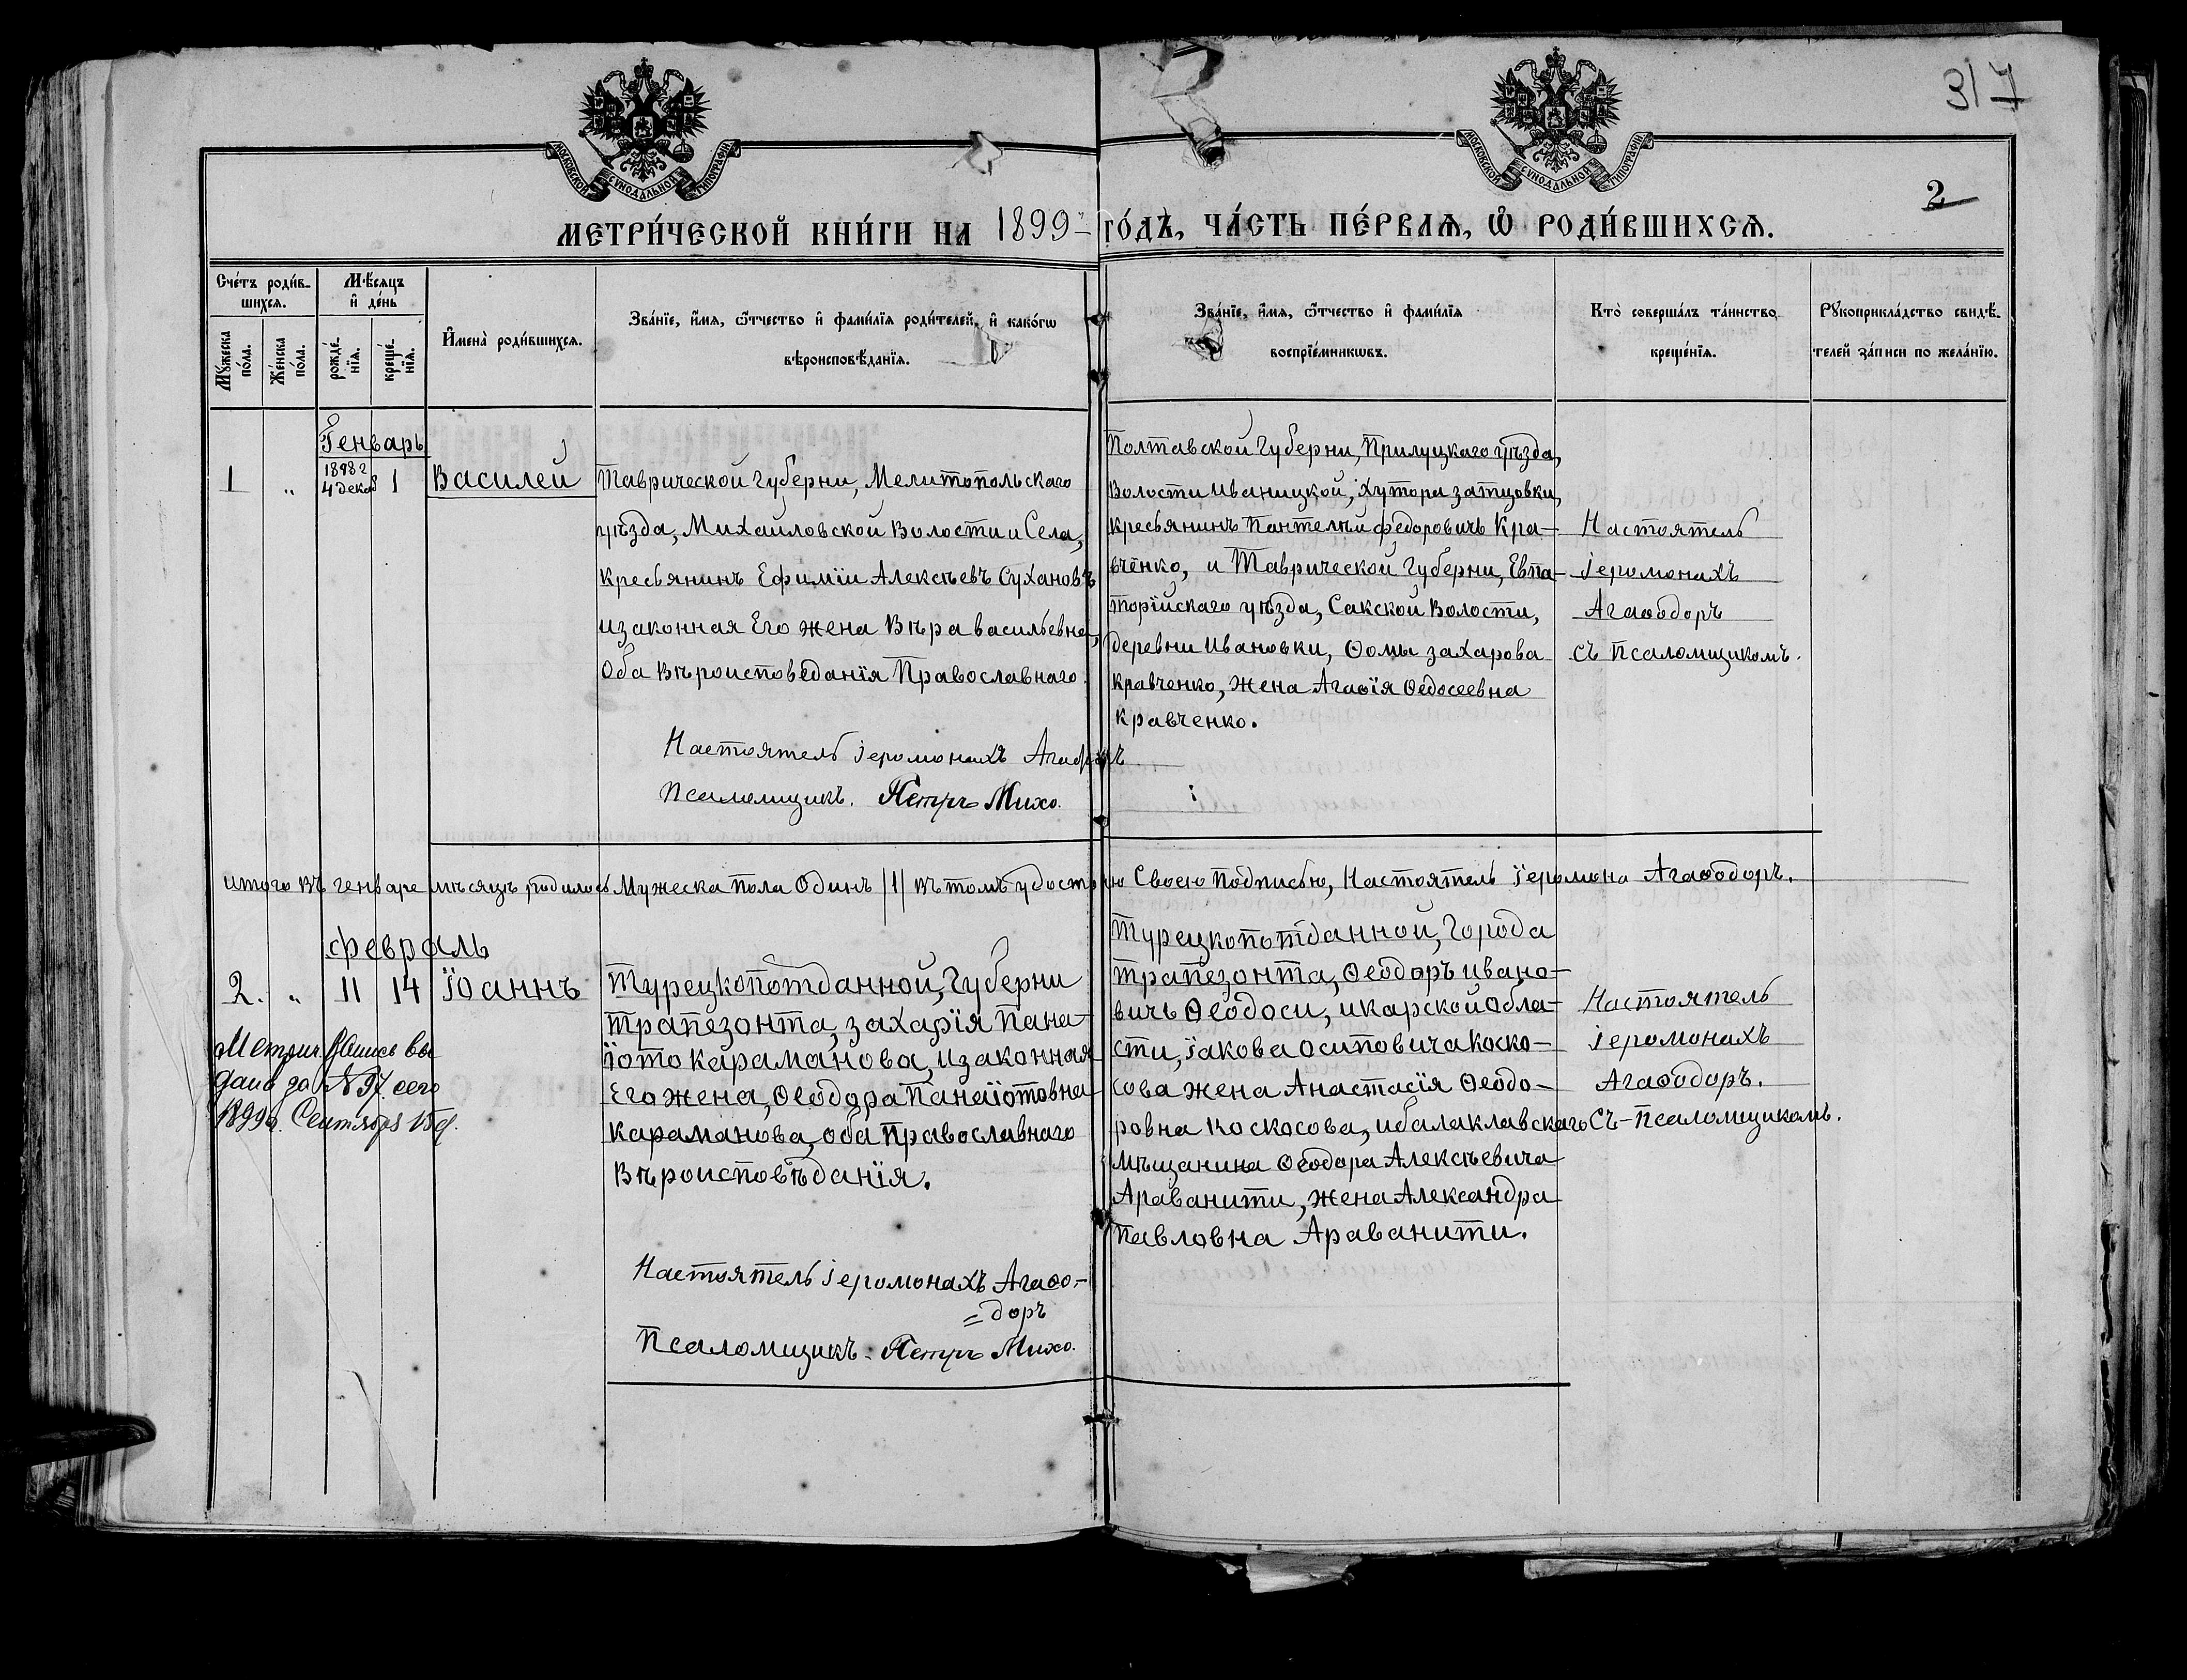 317
2
МОСКОВСКОЙ СѴНОДАЛЬНОЙ ТИПОГРАФІИ
МОСКОВСКОЙ СѴНОДАЛЬНОЙ ТИПОГРАФІИ
МЕТРИ́ЧЕСКОЙ КНИ́ГИ НА 1899 ГО́ДЪ, ЧА́СТЬ ПЕ́РВАѦ, Ѡ РОДИ́ВШИХСѦ.
Сче́тъ роди́в-
шихсѧ.
Мꙋ́жеска
по́ла.
Же́нска
по́ла.
Мѣ́сѧцъ
и҆ де́нь
рожде́-
нїѧ.
креще́-
нїѧ.
И҆мена̀ роди́вшихсѧ.
Зва́нїе, и҆́мѧ, ѻ҆́тчество и҆ фами́лїѧ роди́телей, и҆ како́гѡ
вѣроисповѣ́данїѧ.
Зва́нїе, и҆́мѧ, ѻ҆́тчество и҆ фами́лїѧ
воспрїе́мникѡвъ.
Кто̀ соверша́лъ та́инство
креще́нїѧ.
Рꙋкоприкла́дство свидѣ́-
телей за́писи по жела́нїю.
Генварь
1 „ 1898 г 4 декаб 1 Василей
Таврической Губерни, Мелитопольскаго
уѣзда, Михаиловской Волости и Села,
Кресьянинъ Ефимїи Алексѣевъ Сухановъ
и законная Его жена Вѣра васильевна,
Оба Вѣроисповеданїя Православнаго.
Настоятель іеромонахъ
Псаломщикъ. Петръ Михо.
Полтавской Губерни, Прилуцкаго уѣзда,
Волости Иваницкой, Хутора затцовки,
кресьянинъ Пантелѣй федоровичъ Кра-
вченко, и Таврической Губерни, Евпа-
торїйскаго уѣзда, Сакской Волости,
деревни Ивановки, Ѳомы захарова
кравченко, Жена Агаѳїя Ѳедосеевна
кравченко.
Настоятель
іеромонахъ
Агаѳодоръ
съ псаломщикомъ.
итого въ генваре мѣсяцъ родилось Мужеска пола Одинъ |1| въ томъ удостою Своею Подписью, Настоятель іеромона Агаѳодоръ.
февраль
2. „ 11 14 Їоаннъ
Метрич. выпись вы
дана за № 97. сего
1899г. Сентября 15 д.
Турецкопотданной, Губерни
трапезонта, захарїя Пана-
їото караманова, и законная
Его жена, Ѳеодора Панаїотовна
караманова, оба Православнаго
Вѣроисповѣданїя.
Настоятель іеромонахъ Агаѳо-
=доръ
Псаломщикъ. Петръ Михо.
Турецкопотданной, Города
трапезонта, Ѳеодоръ ивано-
вичъ Ѳеодоси, и карской Обла-
сти, їакова осиповича коско-
сова жена Анастасїя Ѳеодо-
ровна коскосова, и балаклавскаго
мѣщанина Ѳеодора Алексѣевича
Араванити, жена Александра
Павловна Араванити.
Настоятель
іеромонахъ
Агаѳодоръ.
Съ-псаломщикомъ.